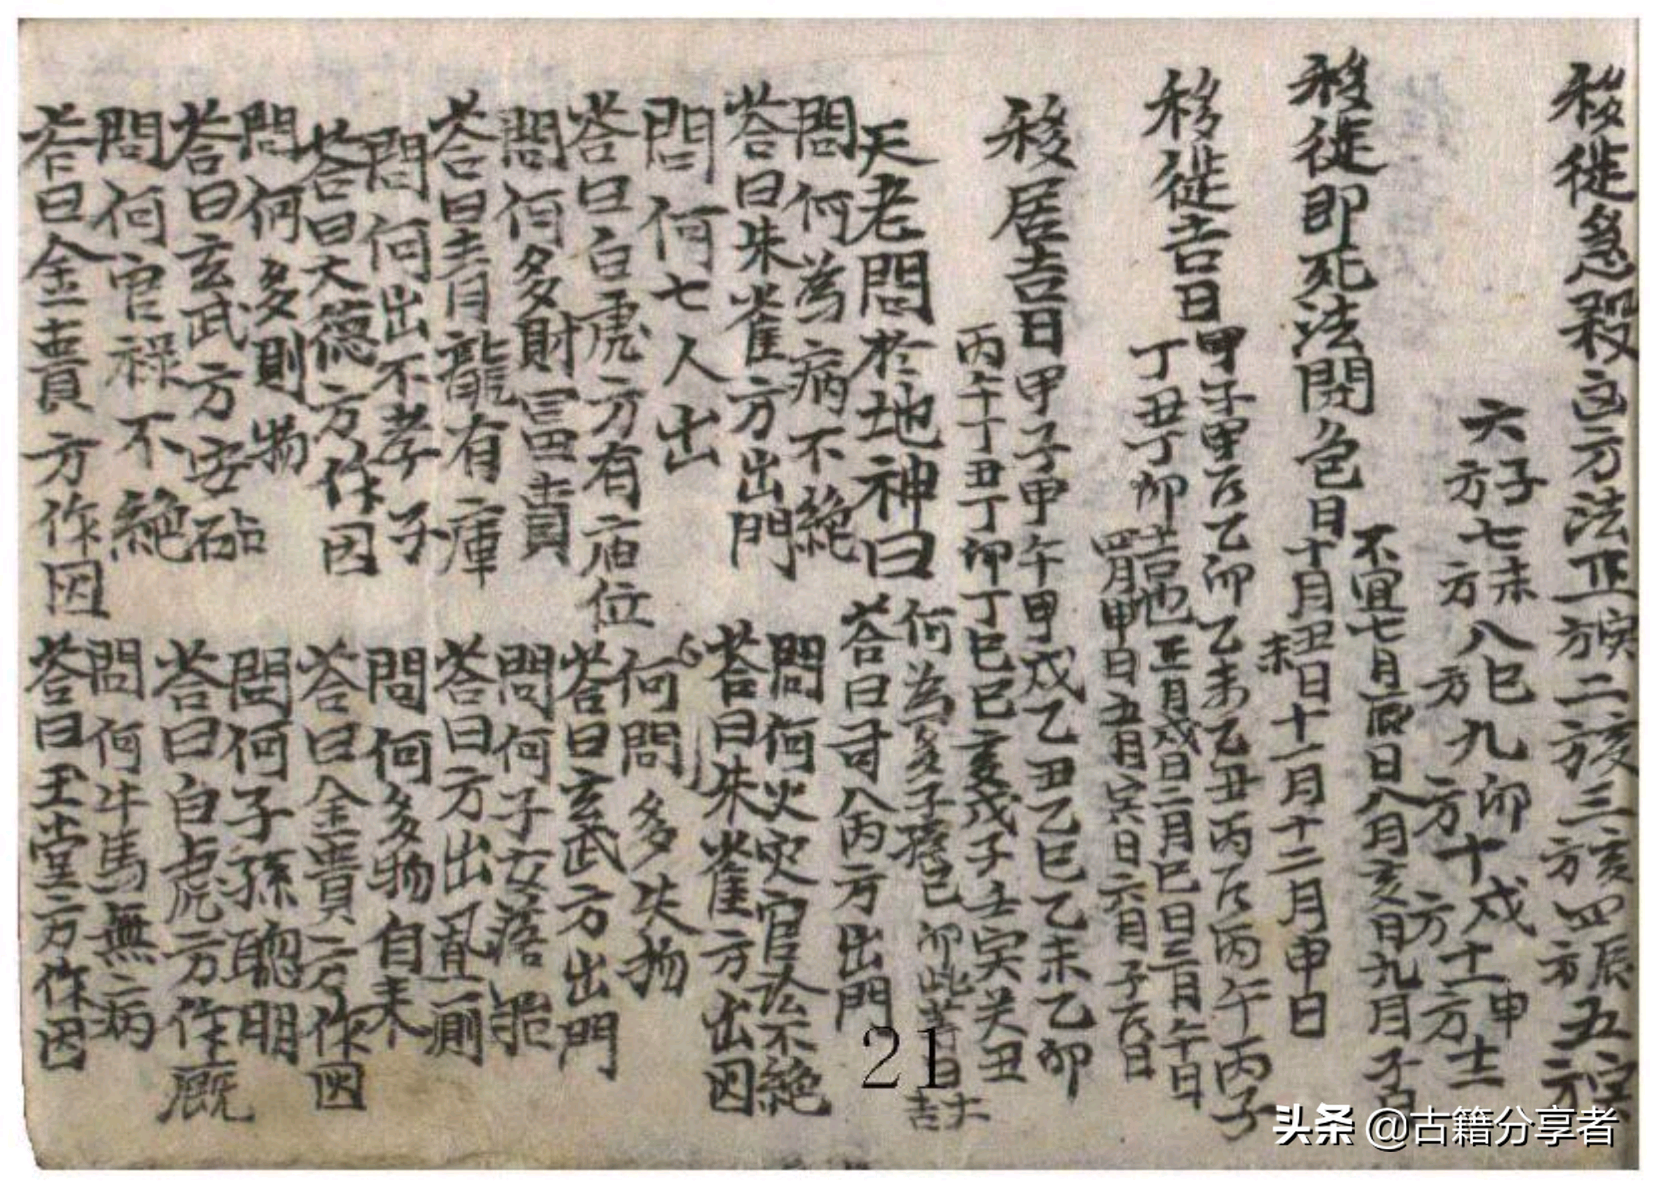 移徙急殺凶方法正方寅二方亥三方亥四方辰五方寅
六方子七方未八方巳九方卯十方戌十一方申十二
移徙即死法開色日十月丑未日十一月十二月申日
不宜七月辰日八月亥月九月子吉
移徙吉日
甲子甲辰乙卯乙未乙丑丙辰丙午丙子
丁丑丁卯吉也正月戌日二月巳日三月午日
四月甲日五月寅日六月子辰日
移居吉日
甲子甲午甲戌乙丑乙巳乙未乙卯
丙午丁丑丁卯丁巳己亥戊子壬寅癸丑
己卯此等日大吉
天老問於地神曰
何為多子孫
答曰艮丙方出門
問何為病不絶
問何火灾官訟不絶
答曰朱雀方出門
答曰朱雀方出囚
問何七人出
何問多失物
答曰白虎方有庙位
答曰玄武方出門
問何多財冨貴
問何子女落胎
答曰青龍有庫
答曰方出乱厠
問何出不孝子
問何多物自来
答曰天德方作囚
答曰金貴方作囚
問何多則物
問何子孫聰明
答曰玄武方安砧
答曰白虎方作廐
問何官禄不絶
問何牛馬無病
答曰金貴方作囚
答曰玉堂方作囚
21
头条 @古籍分享者